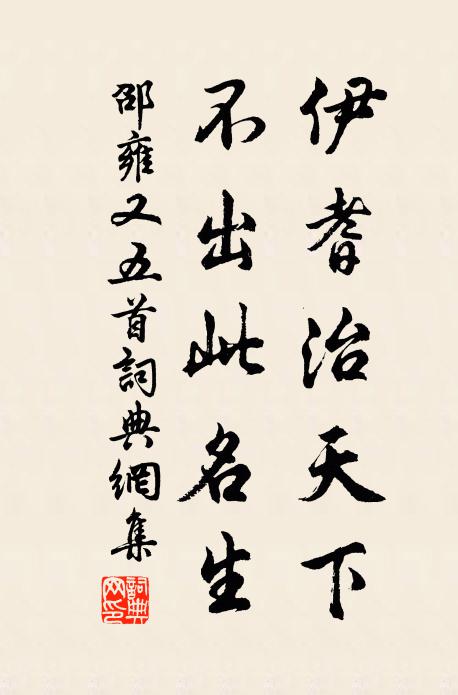 伊耆治天下
不出此名生
邵雍又五首詞典網集
詞典網印